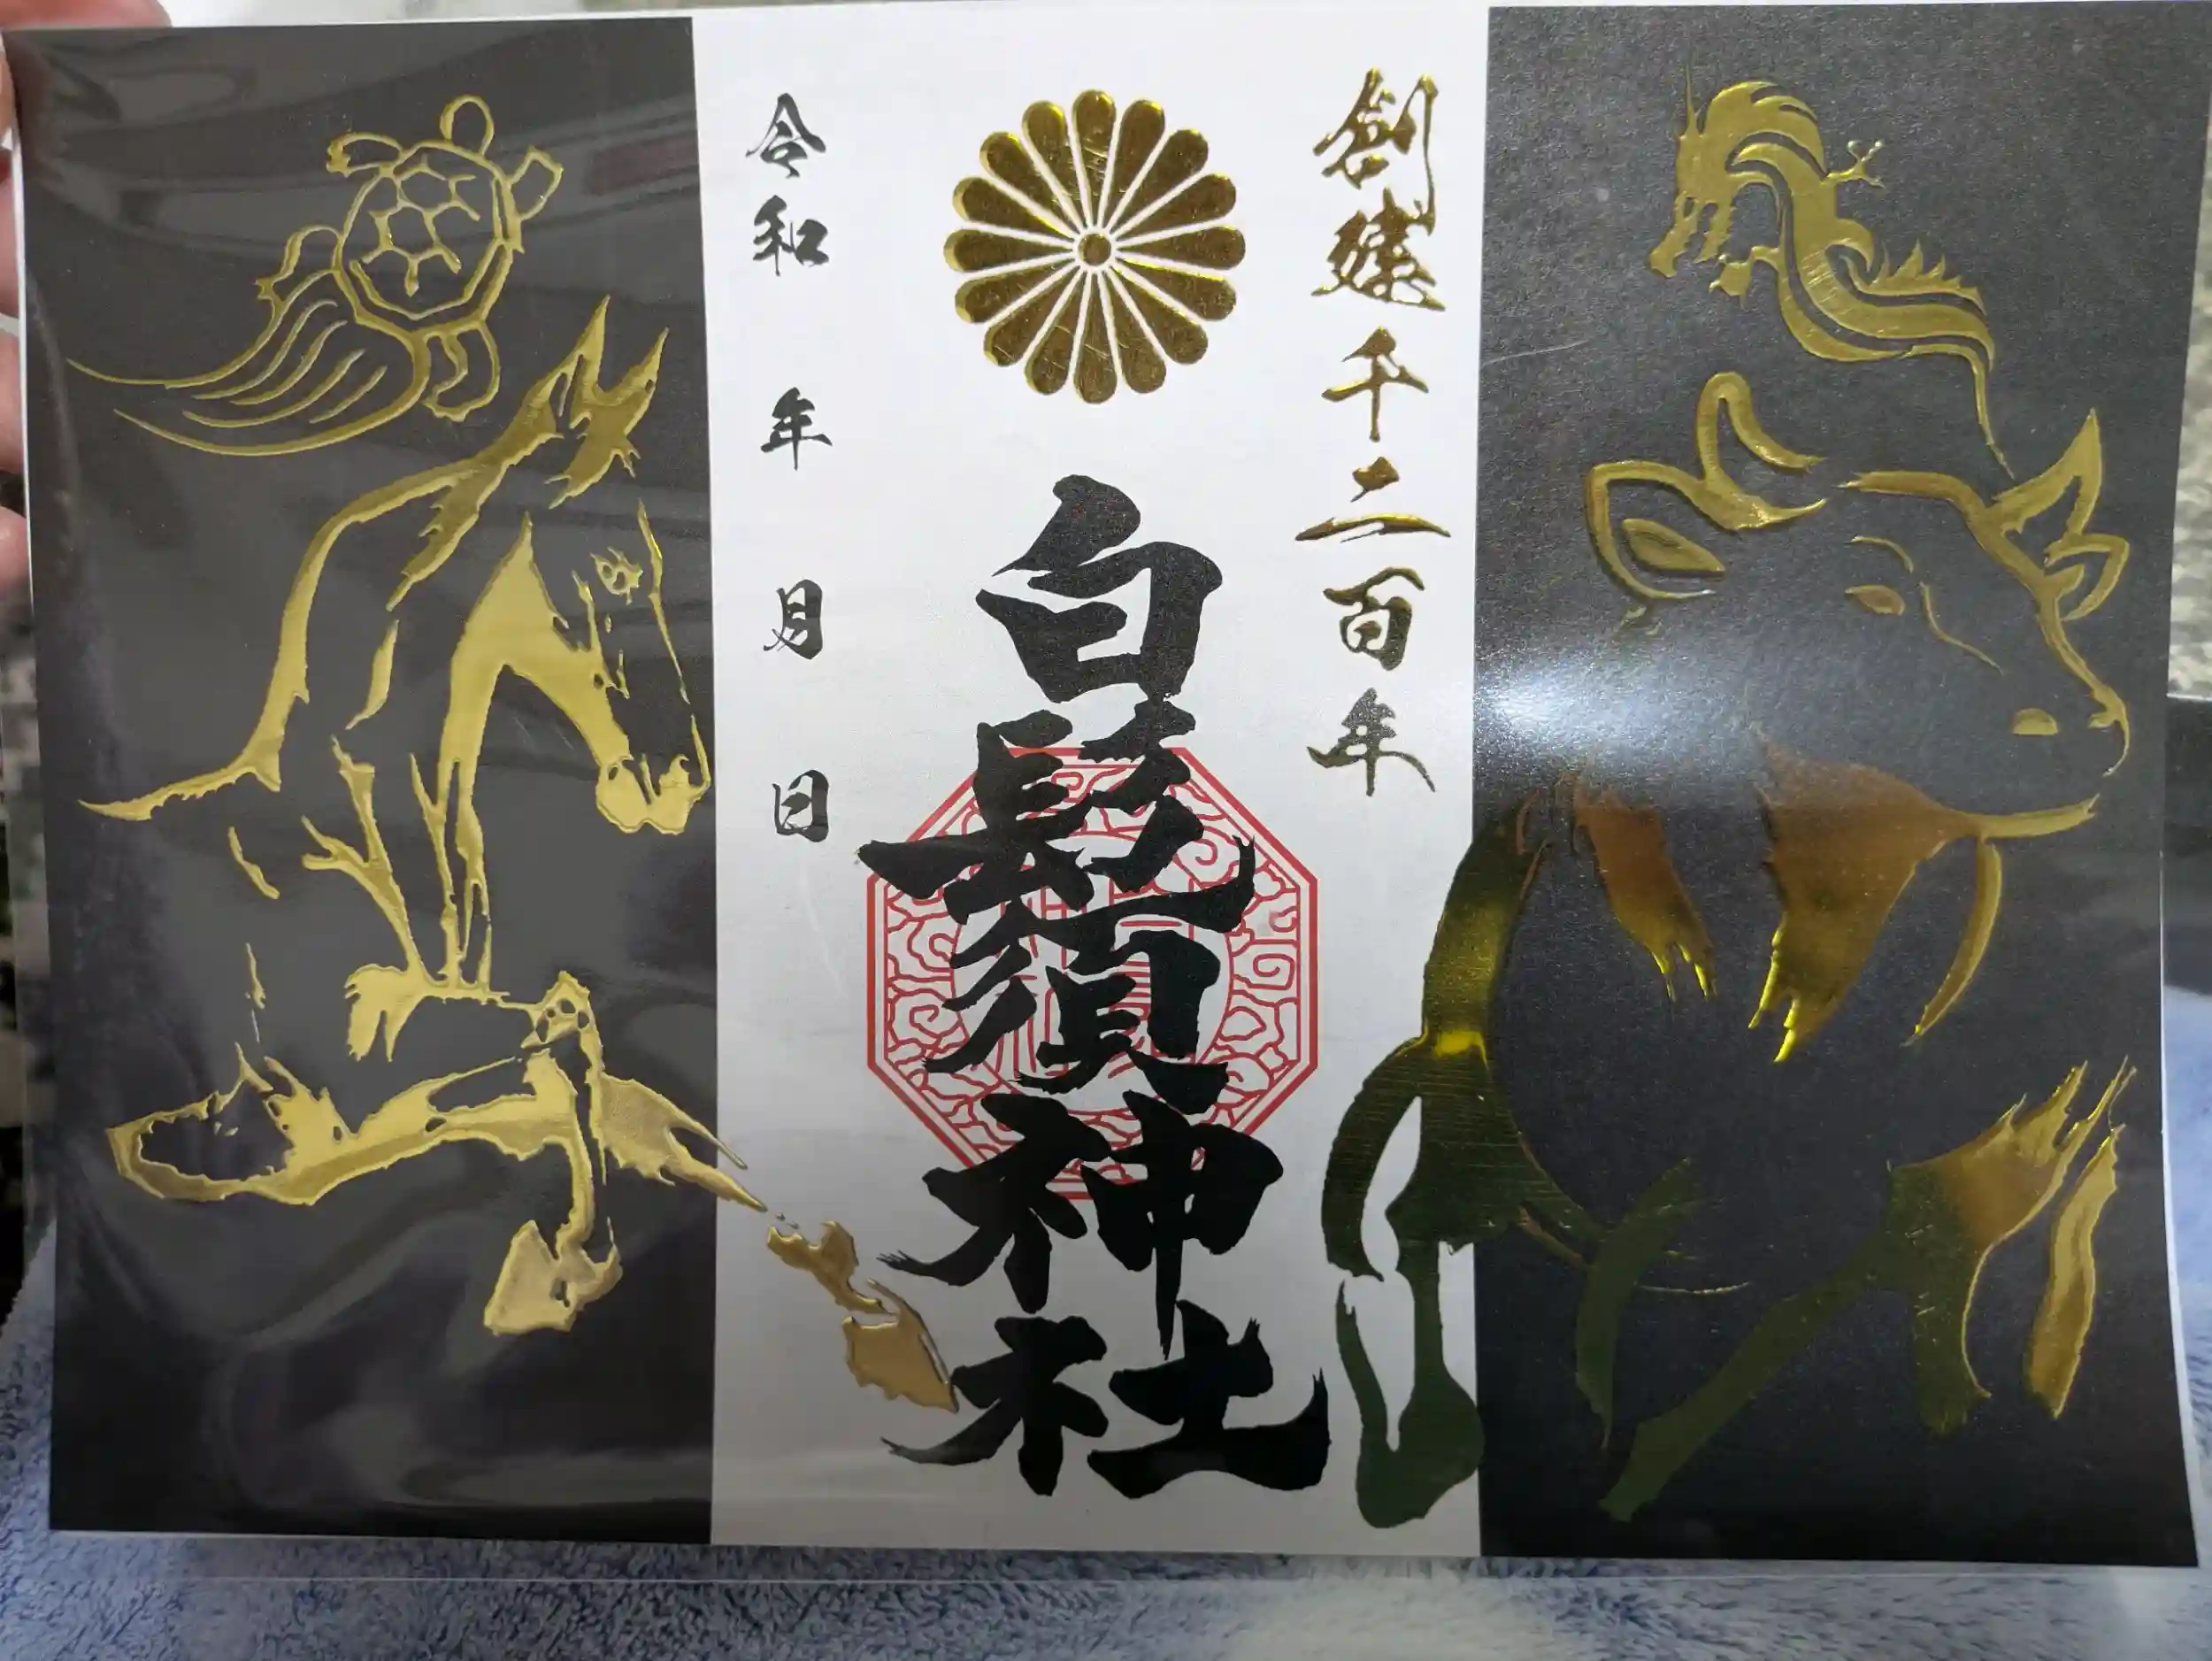 創建千二百年
白鬚神社
令和　年　月　日